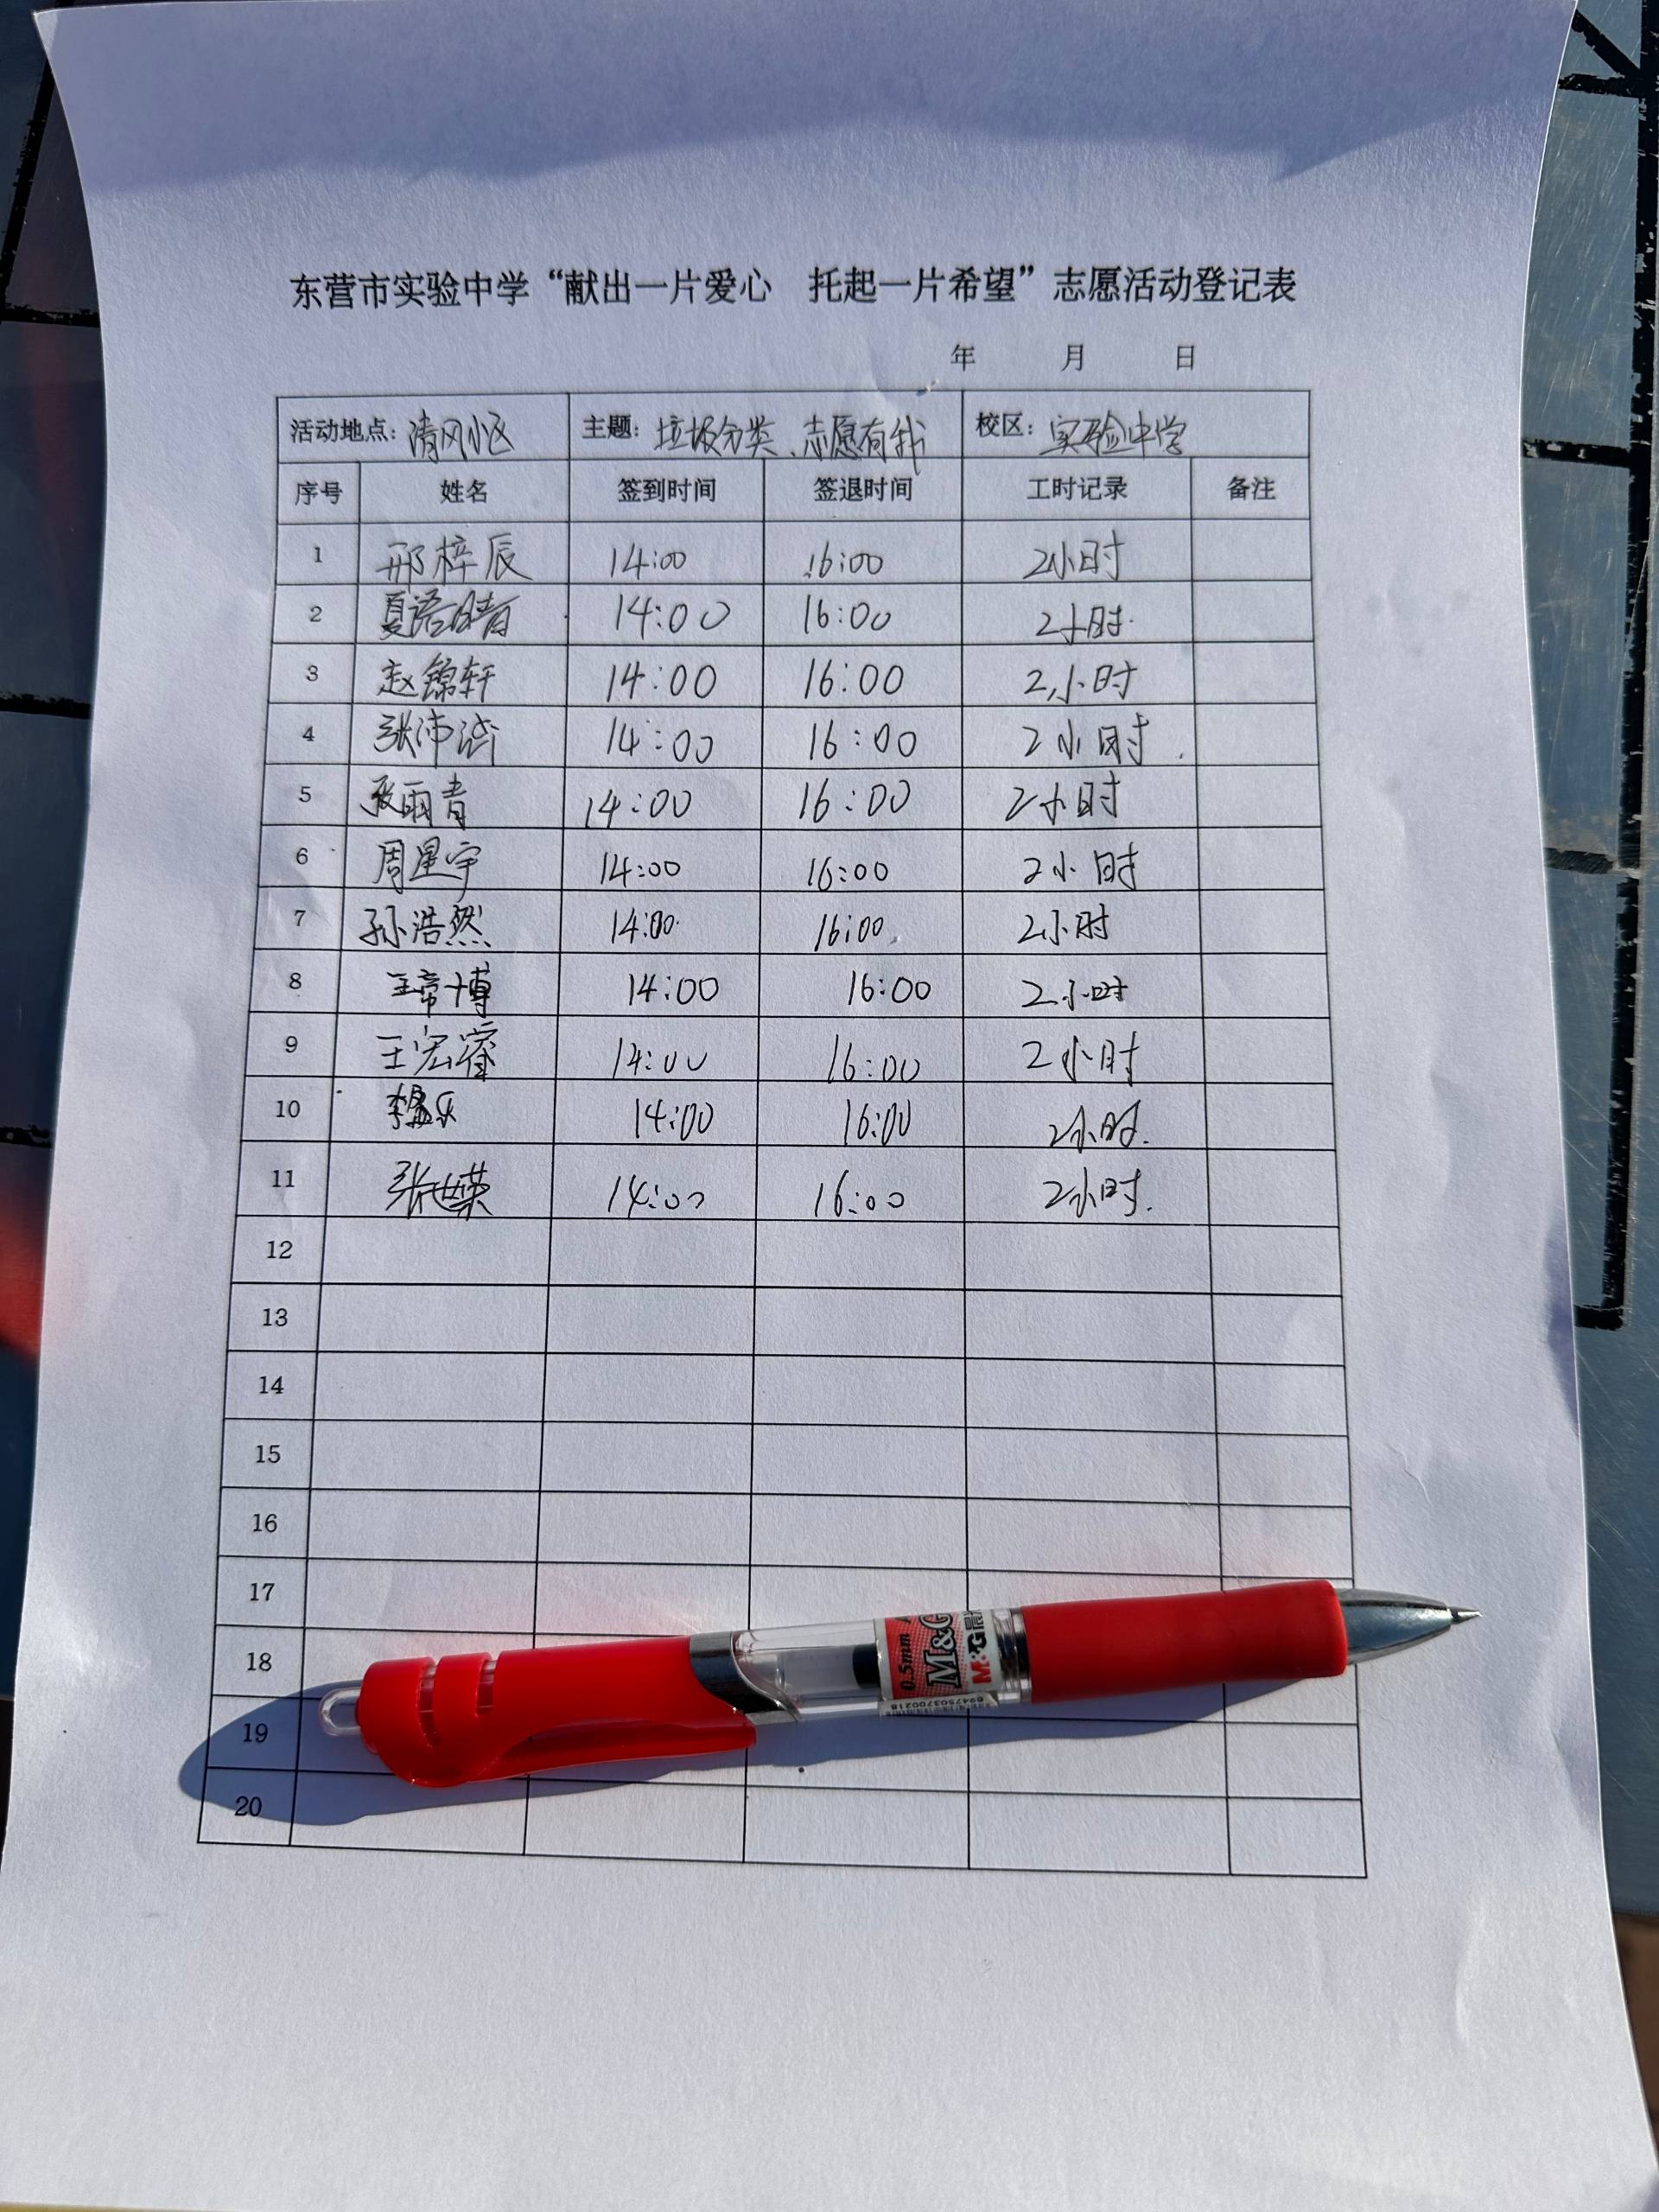 东营市实验中学“献出一片爱心 托起一片希望”志愿活动登记表
年 月 日
活动地点: 清风小区 主题: 垃圾分类、志愿有我 校区: 实验中学
序号 姓名 签到时间 签退时间 工时记录 备注
1 邢梓辰 14:00 16:00 2小时
2 夏语晴 14:00 16:00 2小时
3 赵锦轩 14:00 16:00 2小时
4 张沛 14:00 16:00 2小时
5 张雨青 14:00 16:00 2小时
6 周星宇 14:00 16:00 2小时
7 孙浩然 14:00 16:00 2小时
8 王帝博 14:00 16:00 2小时
9 王宏睿 14:00 16:00 2小时
10 李 乐 14:00 16:00 2小时.
11 张 14:00 16:00 2小时.
12
13
14
15
16
17
18
19
20
0.5mm M&G
M&G
6947503700218